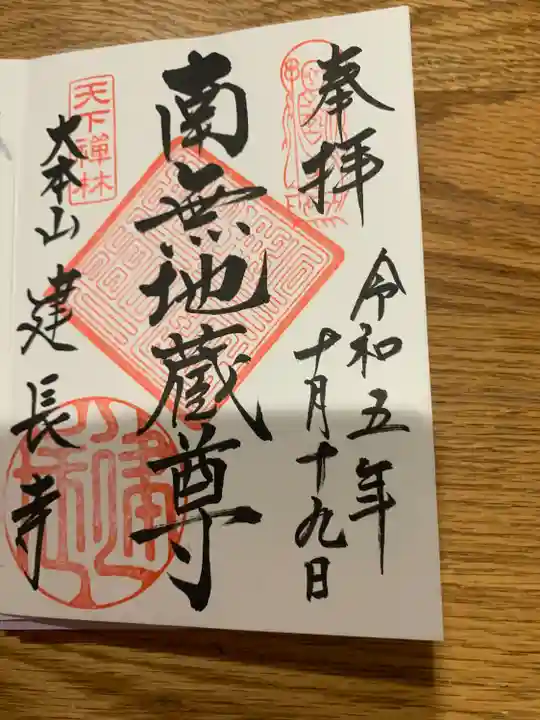 奉拝
令和五年
十月十九日
南無地蔵尊
天下禅林
大本山 建長寺